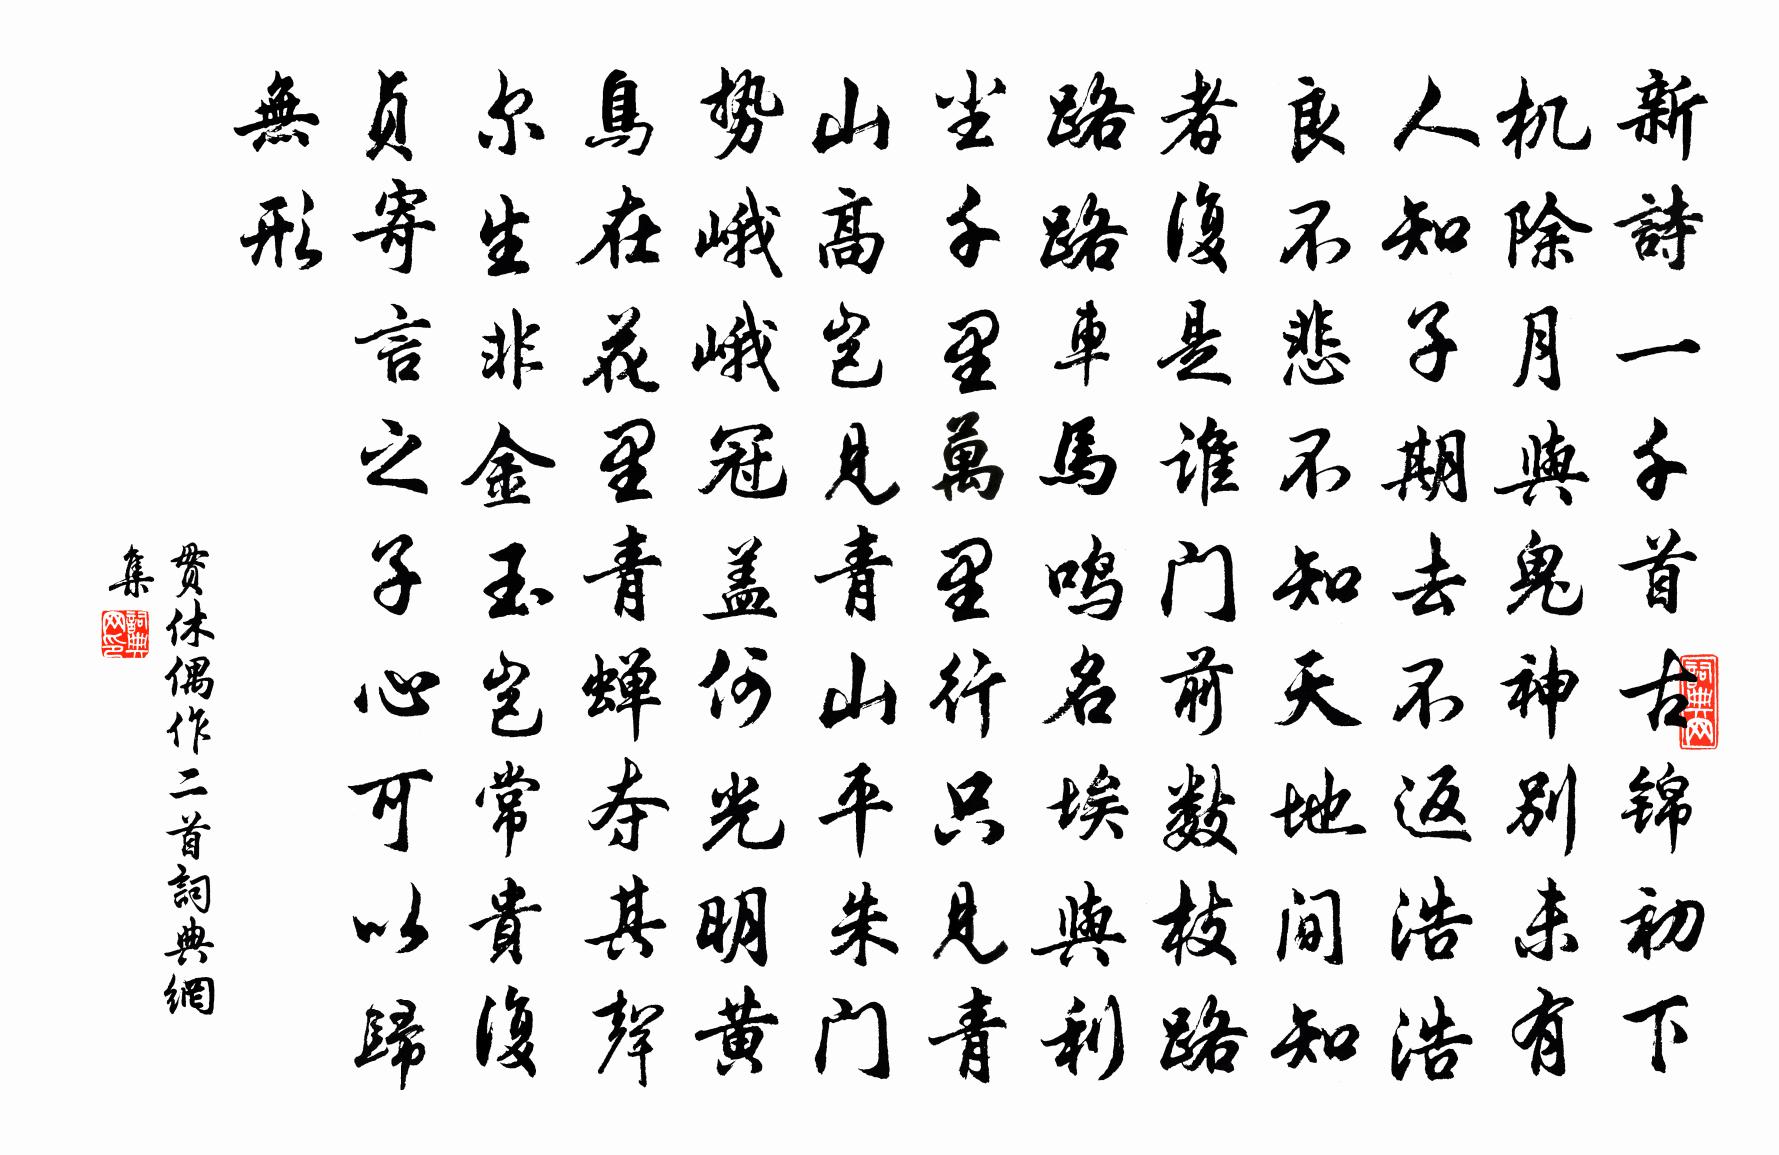 新詩一千首古錦初下
机除月與鬼神别未有
人知子期去不返浩浩
良不悲不知天地间知
者復是谁门前数枝路
路路車馬鸣名埃與利
尘千里萬里行只見青
山高岂見青山平朱门
势峨峨冠盖何光明黄
鳥在花里青蝉夺其聲
尔生非金玉岂常貴復
貞寄言之子心可以歸
無形
贯休偶作二首詞典網
集
詞典网
詞典网印